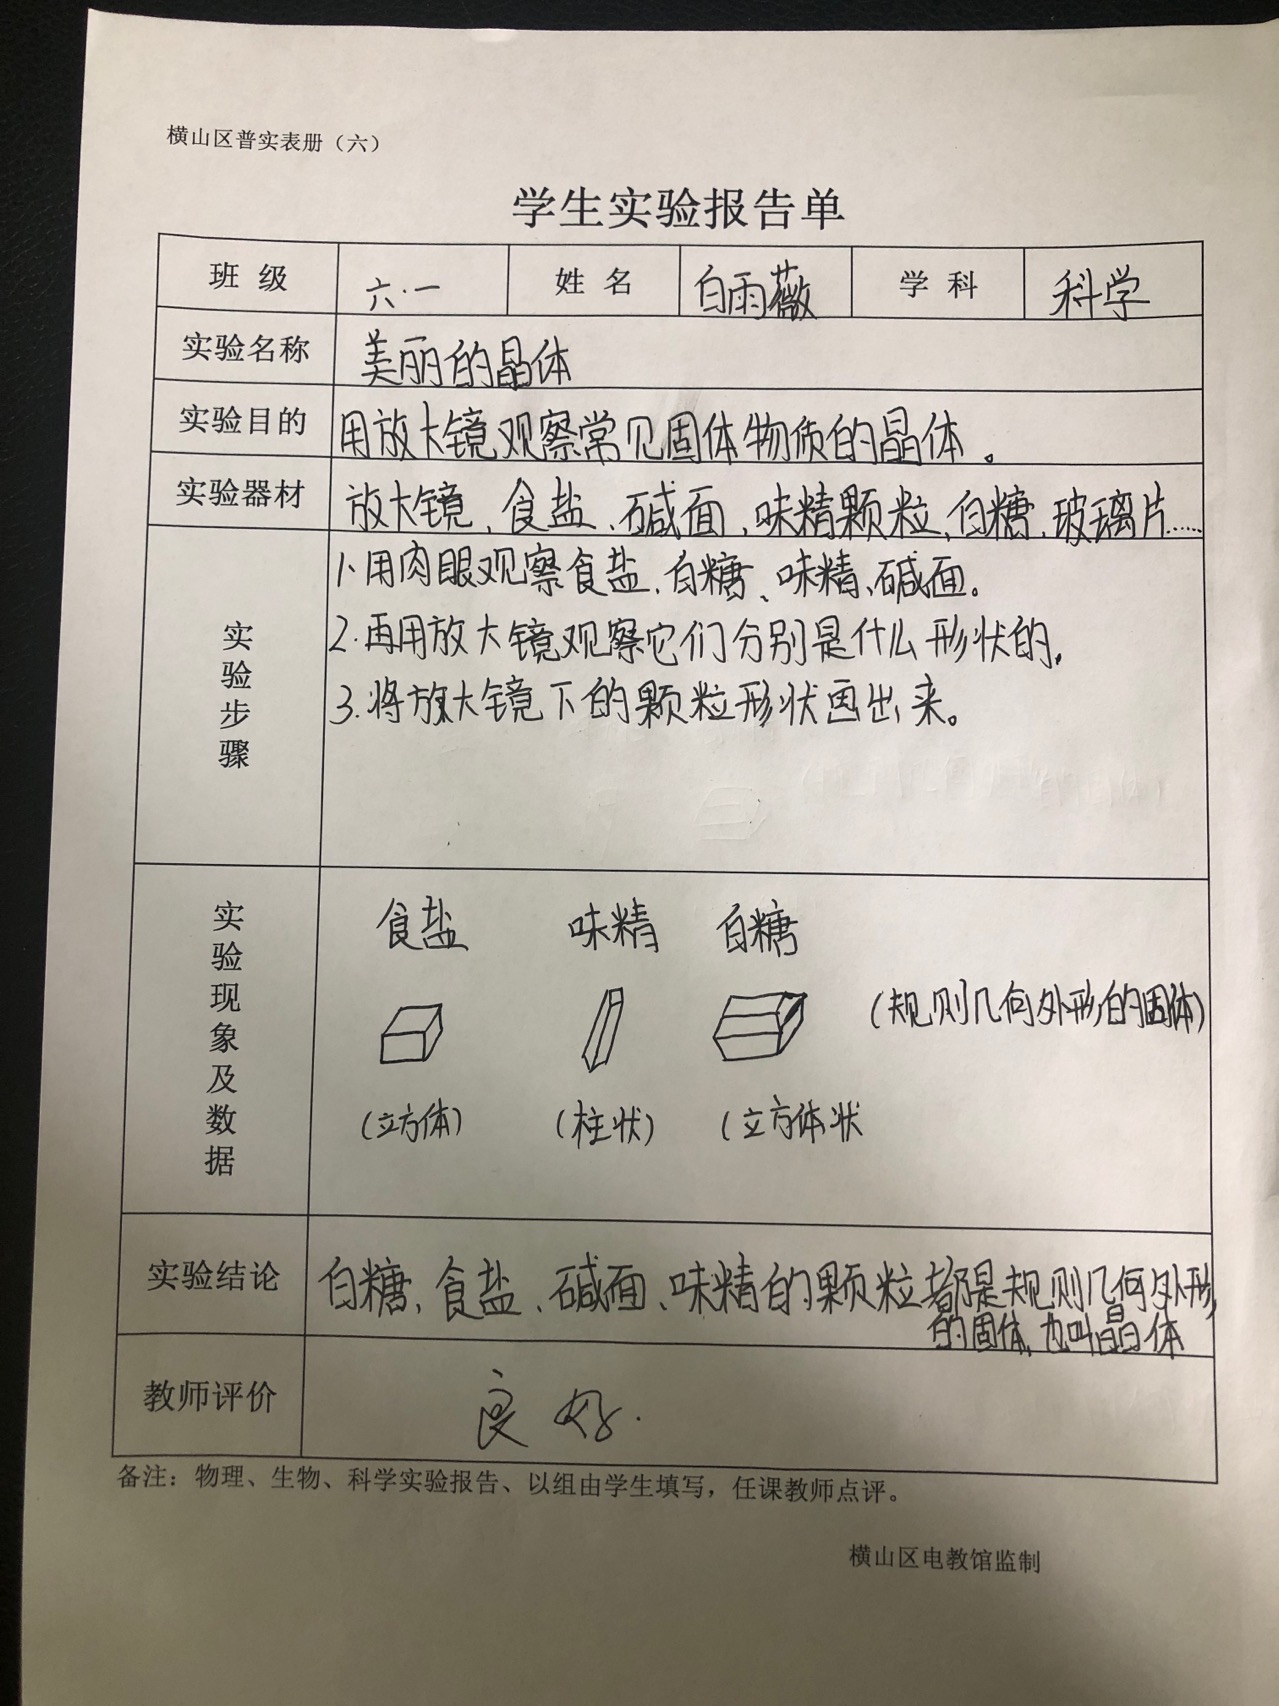 横山区普实表册（六）
学生实验报告单
班 级 六·一 姓 名 白雨薇 学 科 科学
实验名称 美丽的晶体
实验目的 用放大镜观察常见固体物质的晶体。
实验器材 放大镜、食盐、碱面、味精颗粒、白糖、玻璃片……
实验步骤
1.用肉眼观察食盐、白糖、味精、碱面。
2.再用放大镜观察它们分别是什么形状的。
3.将放大镜下的颗粒形状画出来。
实验现象及数据
食盐 味精 白糖
(规则几何外形的固体)
(立方体) (柱状) (立方体状
实验结论 白糖、食盐、碱面、味精的颗粒都是规则几何外形,
的固体,也叫晶体
教师评价 良好.
备注：物理、生物、科学实验报告、以组由学生填写，任课教师点评。
横山区电教馆监制